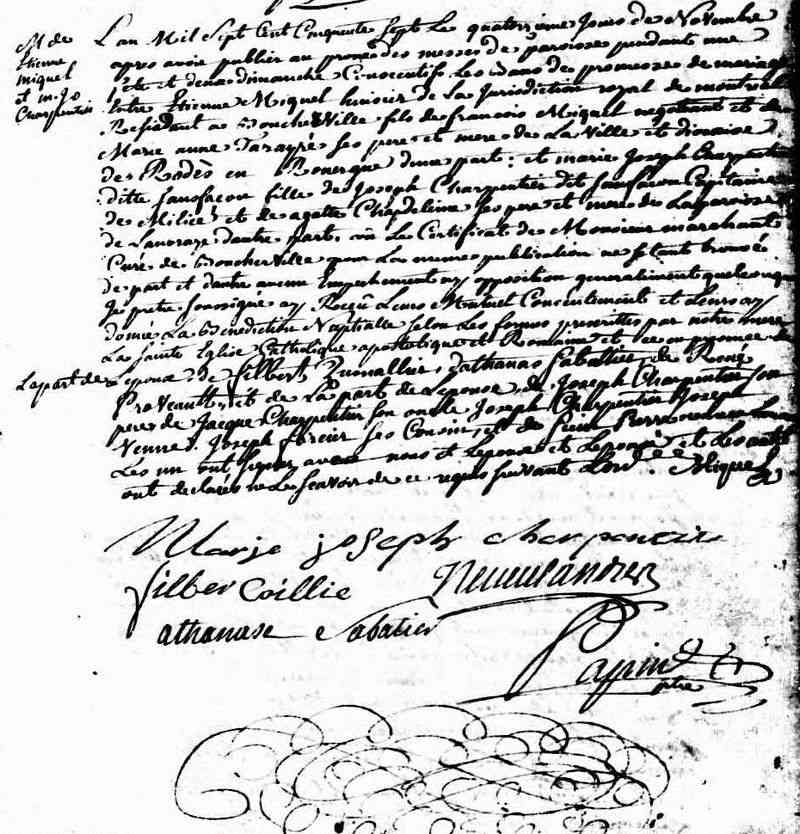 M de
Etienne
miquel
et m. Jo
Charpentier
L'an Mil Sept Cent Cinquente Sept Le quatorzieme Jours de Novembre
apres avoir publier au prone des messes de paroisse pendant une
fete et deux dimanche Consecutifs Les bans de promesse de mariage
Entre Etienne Miquel huisier de La Jurisdiction royal de montreal
Residant a Boucherville fils de francois Miquel negotiant et de
Marie anne Tarayre ses pere et mere de La Ville et diocaise
de Rodès en Rouergue dune part : et marie Joseph Charpentier
ditte sansfacon fille de Joseph Charpentier dit sansfacon Capitaine
de Milice et de agatte Chapdeleine ses pere et mere de La paroisse
de Lavraye dautre part. vû Le Certificat de Monsieur marchand
Curé de Boucherville pour La meme publication ne setant trouvé
de part et dautre aucun Empechement ny opposition generalement quelconque
Je pretre soussigne ay Reçeü Leurs Mutuel Consentement et Leurs ay
donné La Benediction Nuptialle selon Les formes prescrittes par notre mere
La Sainte Eglise Catholique apostolique et Romaine et ce en presence de
La part de Lepoux de Silbert Athanas Sabattier, de René
et de La part de Lepouse de Joseph Charpentier son
pere de Jacque Charpentier son oncle Joseph Charpentier Joseph
Venne. Joseph ses Cousin, et de
Les un ont signer avec nous et Lepoux et Lepouse et Les autres
ont declarés ne Le scavoir de ce requis suivant Lord. Miquel
Marie joseph charpentier
Silber Coillie
athanase Sabatier
Papin
ptre